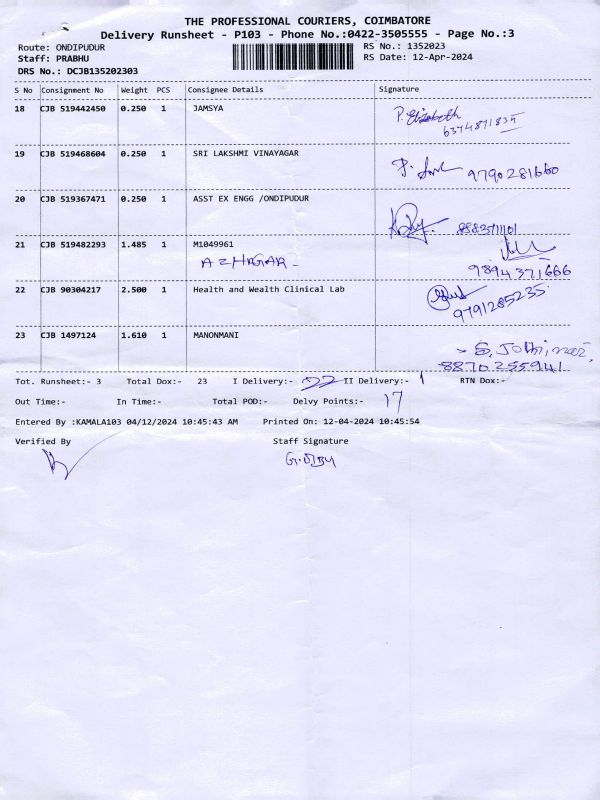 THE PROFESSIONAL COURIERS, COIMBATORE
Delivery Runsheet - P103 - Phone No.:0422-3505555 - Page No.:3
Route: ONDIPUDUR RS No.: 1352023
Staff: PRABHU RS Date: 12-Apr-2024
DRS No.: DCJB135202303
S No Consignment No Weight PCS Consignee Details Signature
18 CJB 519442450 0.250 1 JAMSYA P. Elizabeth
6374871835
19 CJB 519468604 0.250 1 SRI LAKSHMI VINAYAGAR 9790281660
20 CJB 519367471 0.250 1 ASST EX ENGG /ONDIPUDUR
21 CJB 519482293 1.485 1 M1049961
AZHAGAR - 9894371666
22 CJB 90304217 2.500 1 Health and Wealth Clinical Lab
9791285235
23 CJB 1497124 1.610 1 MANONMANI
8870255941
Tot. Runsheet:- 3 Total Dox:- 23 I Delivery:- 22 II Delivery:- 1 RTN Dox:-
Out Time:- In Time:- Total POD:- Delvy Points:- 17
Entered By :KAMALA103 04/12/2024 10:45:43 AM Printed On: 12-04-2024 10:45:54
Verified By Staff Signature